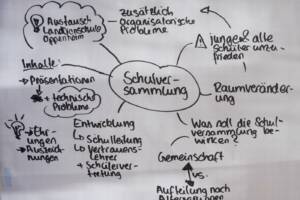 Austausch
Landjenschule
Oppenheim
zusätzlich
organisatorische
Probleme
junge & alle
Schüler unzu-
frieden
Inhalte:
→ Präsentationen
+ technische
Probleme
Schulver-
sammlung
Raumveränder-
ung
→ Ehr-
ungen
→ Auszeich-
nungen
Entwicklung
↳ Schulleitung
↳ Vertrauens-
lehrer
+ Schülerver-
tretung
Was soll die Schul-
versammlung be-
wirken?
Gemeinschaft
vs.
Aufteilung nach
Altersgruppen